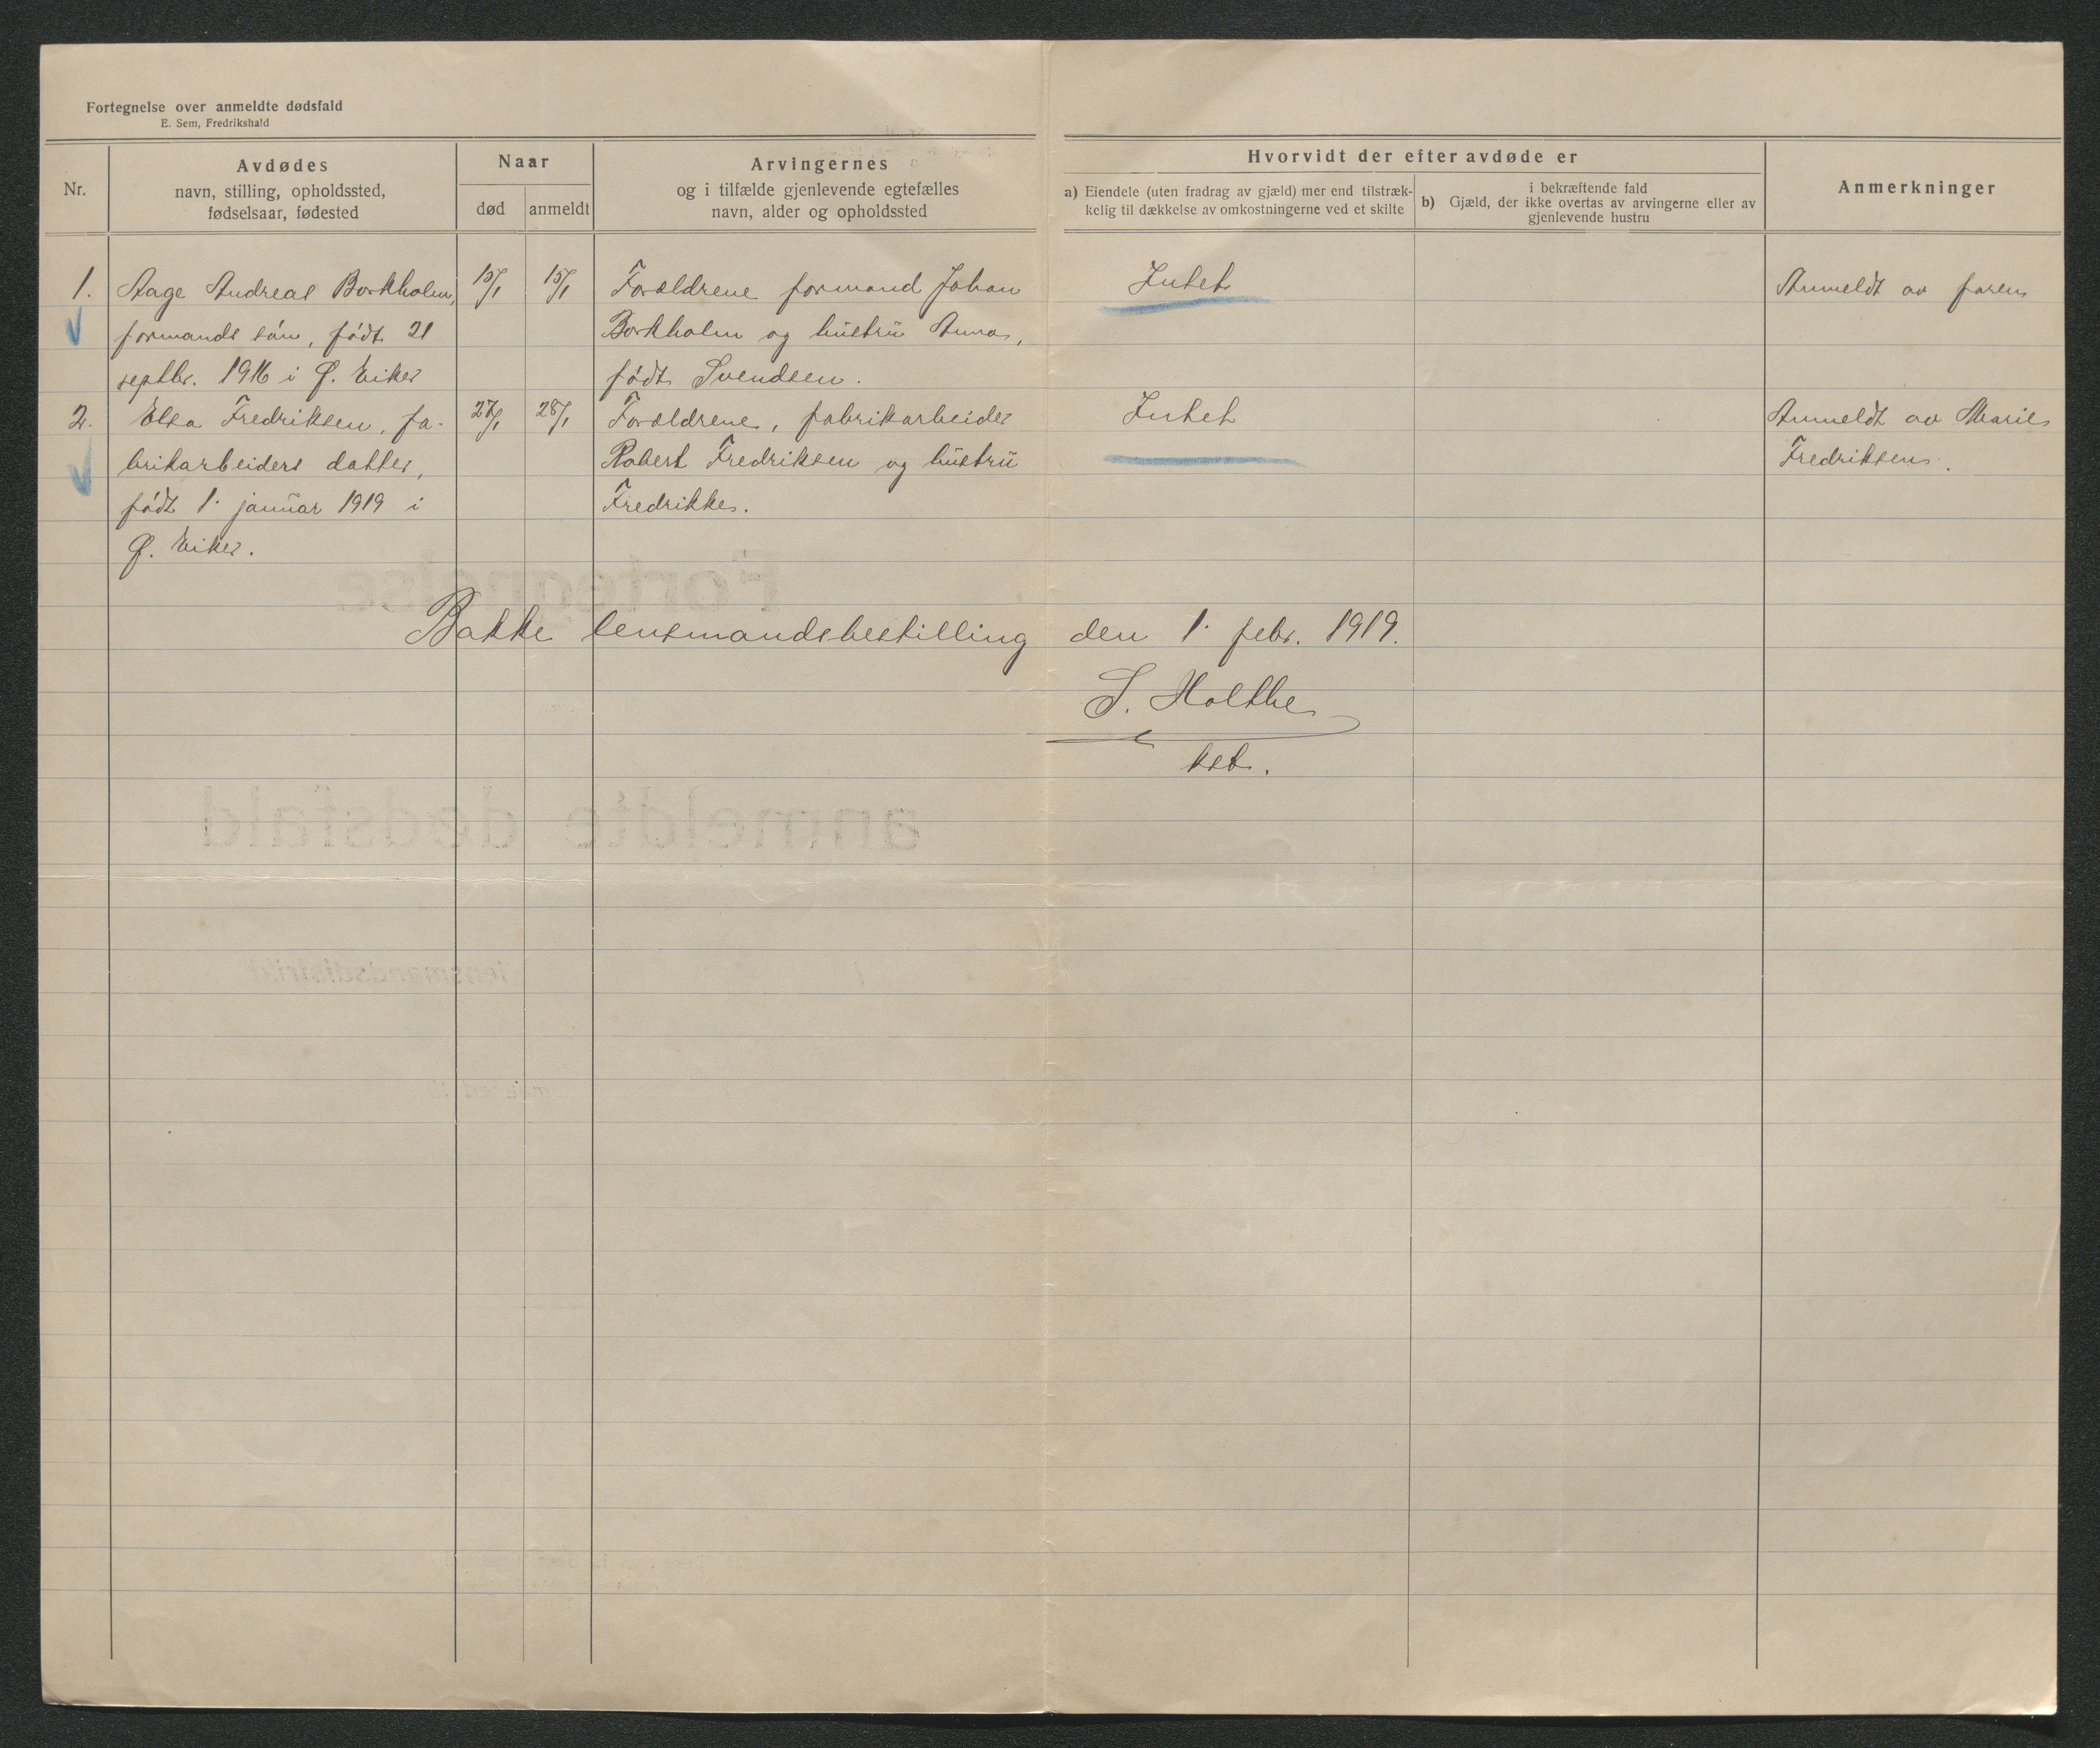 Fortegnelse over anmeldte dødsfald
E. Sem, Fredrikshald
Nr.
Avdødes
navn, stilling, opholdssted,
fødselsaar, fødested
Naar
død
anmeldt
Arvingernes
og i tilfælde gjenlevende egtefælles
navn, alder og opholdssted
Hvorvidt der efter avdøde er
a) Eiendele (uten fradrag av gjæld) mer end tilstræk-
kelig til dækkelse av omkostningerne ved et skilte
b) Gjæld, der ikke overtas av arvingerne eller av
i bekræftende fald
gjenlevende hustru
Anmerkninger
1.
Aage Andreas Borkholm,
formands søn, født 21
septbr. 1916 i Ø. Eiker
15/1
15/1
Forældrene formand Johan
Borkholm og hustru Anna,
født Svendsen.
Intet
Anmeldt av faren
2.
Elsa Fredriksen, fa-
brikarbeiders datter,
født 1. januar 1919 i
Ø. Eiker.
27/1
28/1
Forældrene, fabrikarbeider
Robert Fredriksen og hustru
Fredrikke.
Intet
Anmeldt av Marie
Fredriksen.
Bakke lensmandsbestilling den 1. febr. 1919.
S. Holthe
kst.
Fortegnelse
anmeldte dødsfald
lensmandsdistrikt